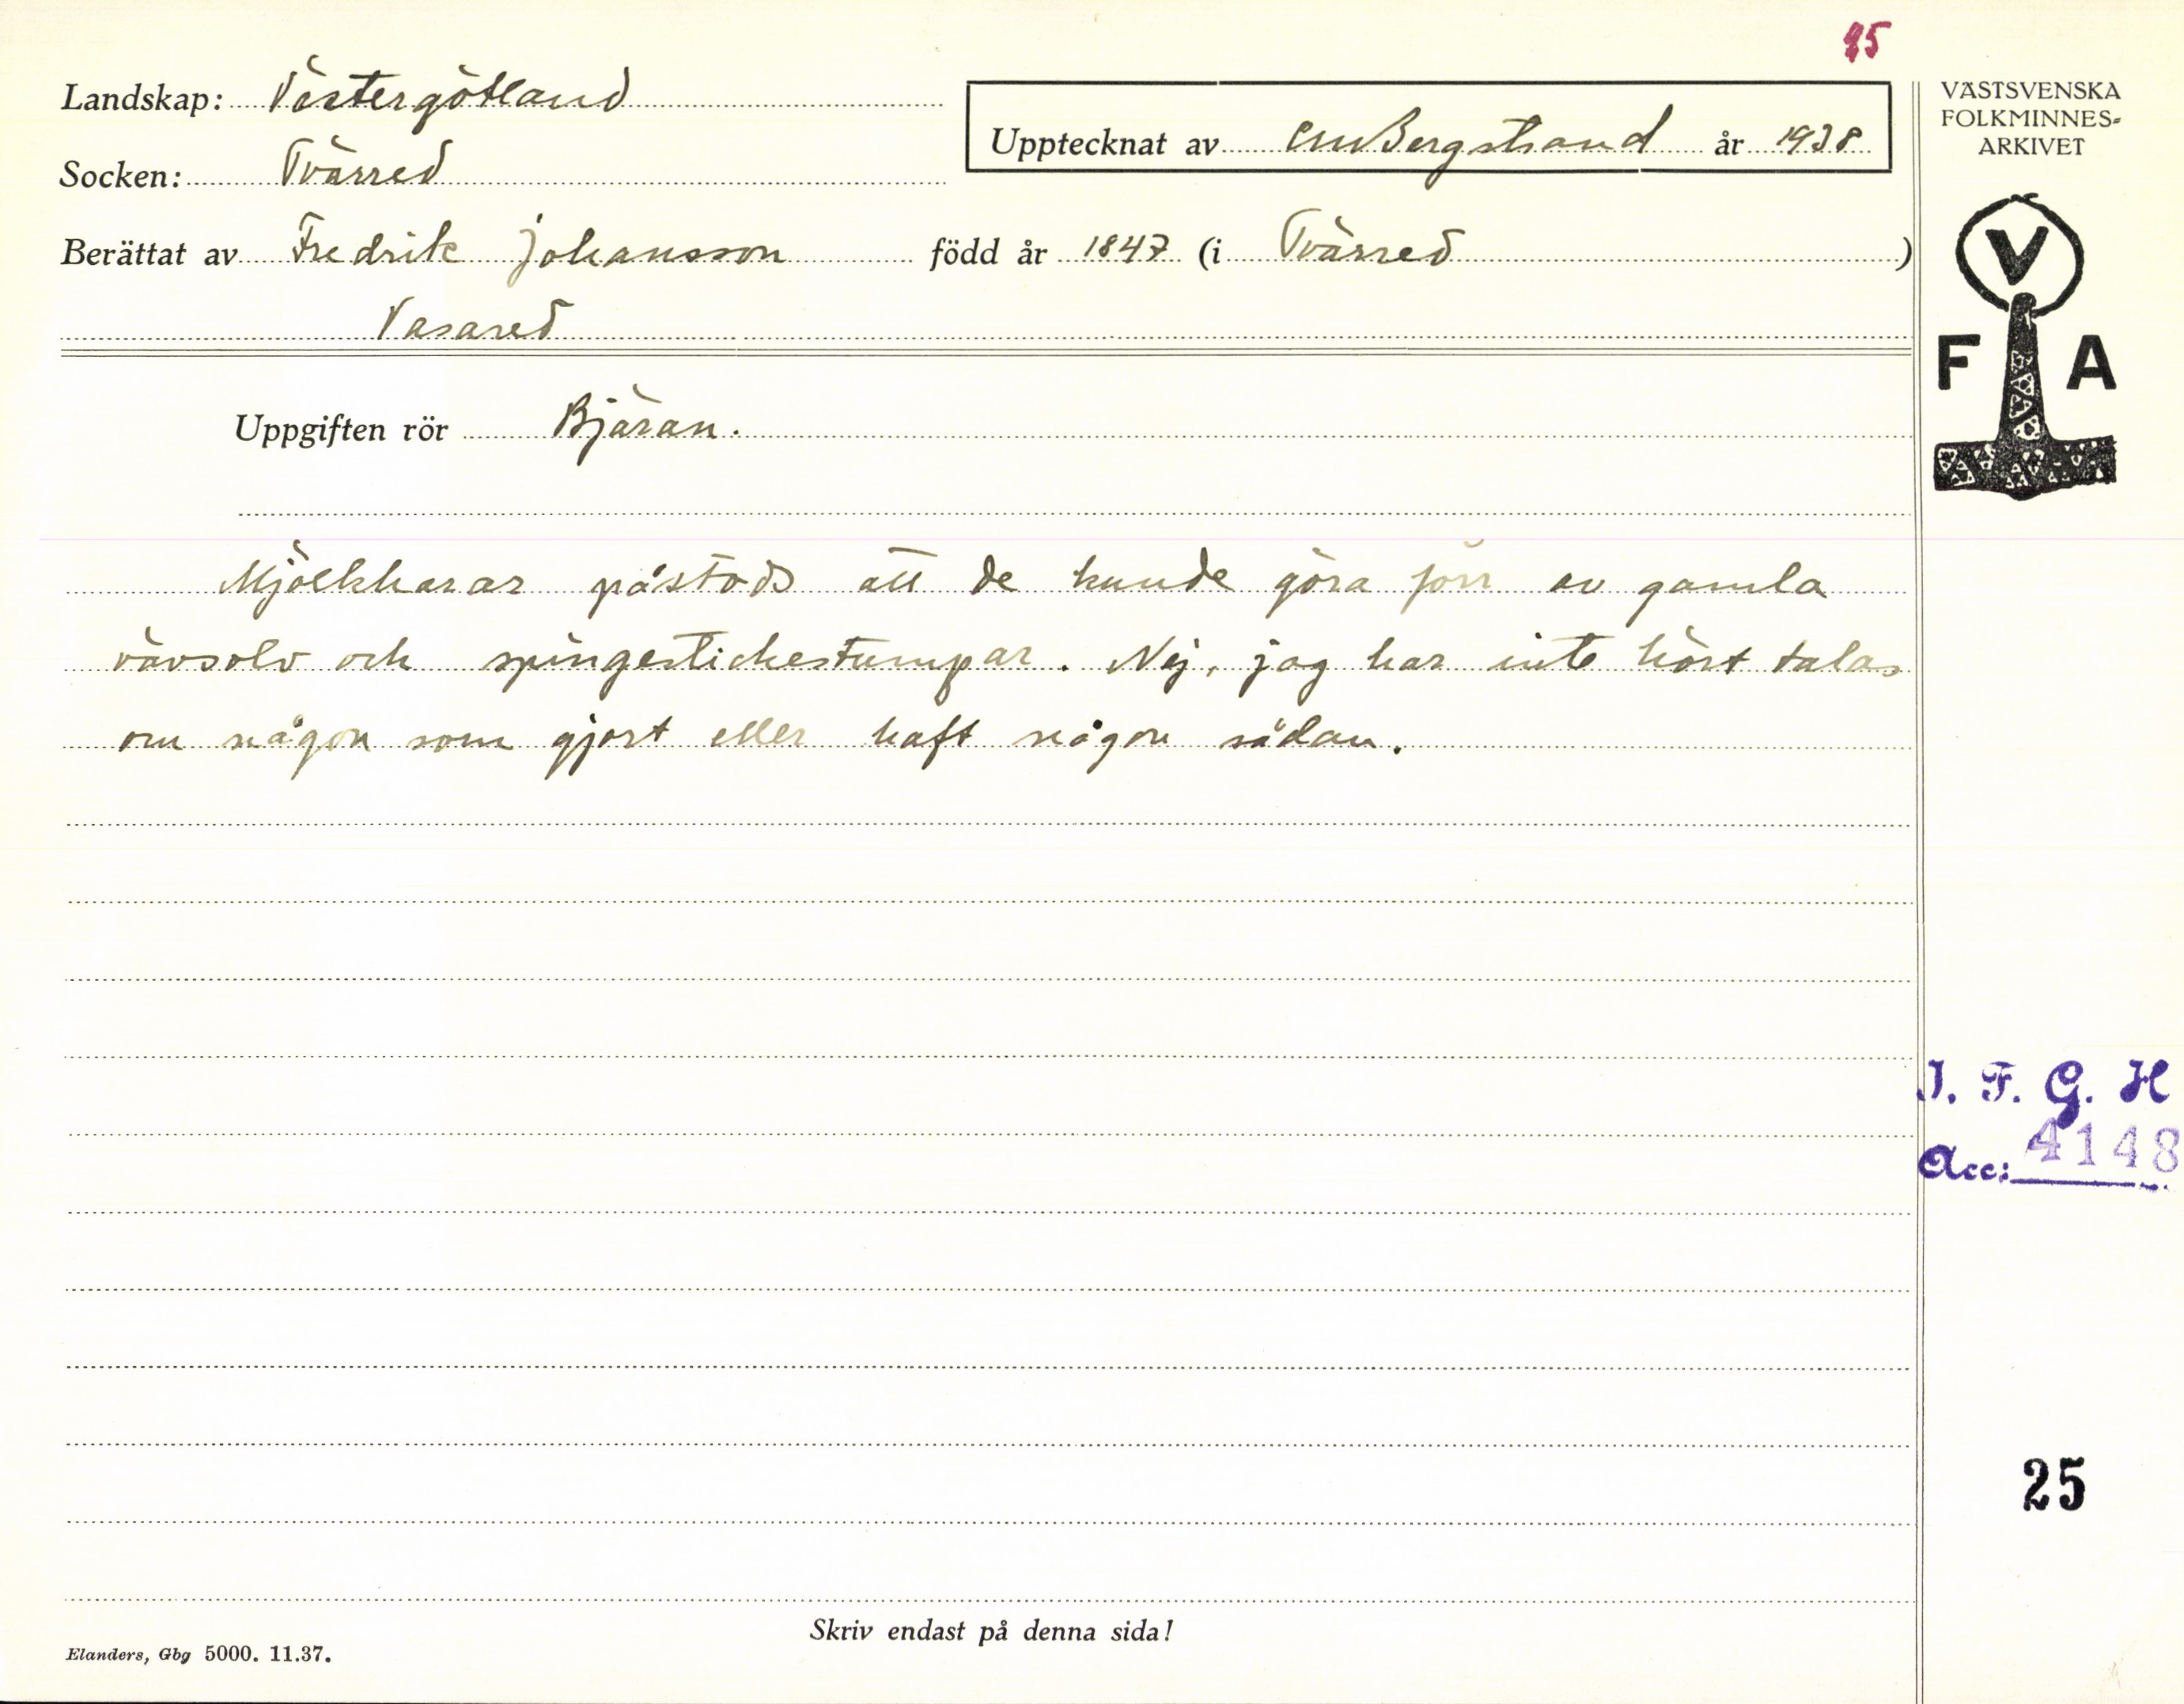 45
Landskap: Västergötland
Socken: Tvärred
Upptecknat av CMBergstrand år 1938
Berättat av Fredrik Johansson född år 1847 (i Tvärred)
Vasared
Uppgiften rör Bjäran.
Mjölkharar påstods att de kunde göra förr av gamla
vävsolv och spingestickestumpar. Nej, jag har inte hört talas
om någon som gjort eller haft någon sådan.
Skriv endast på denna sida!
Elanders, Gbg 5000. 11.37.
VÄSTSVENSKA
FOLKMINNES-
ARKIVET
V
F A
I. F. G. H
Acc: 4148
25